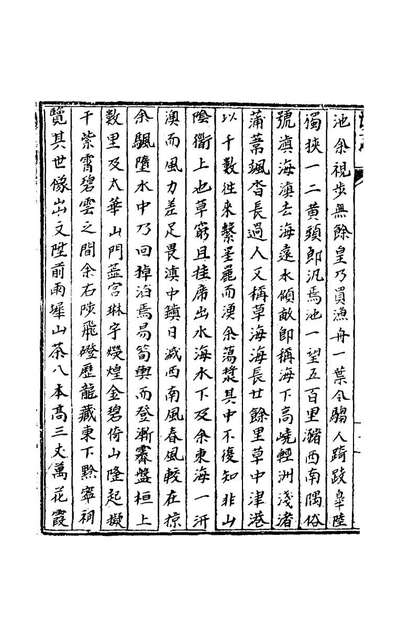 池余視步無餘皇乃買漁舟一葉令騶人踦跂皐陸
獨挾一二黃頭郎汎焉池一望五百里瀦西南隅俗
號滇海滇去海遠水傾敵即稱海下高嶢輕洲淺渚
蒲藁颯沓長過人又稱草海海長廿餘里草中津港
以千數徃來繫䍡麗而漫余蕩槳其中不復知非山
陰衢上也草窮且挂席出水海水下及余東海一汧
澳而風力差足畏滇中鎮日滅西南風春風較在掠
余颿墮水中乃回掉沿焉易筍輿而登漸霧盤桓上
數里及太華山門蓝宮琳宇爍煌金碧倚山隆起擬
干紫霄碧雲之間余右陟飛磴歷龍藏東下黔寧祠
覽其世像出文陛前兩墀山茶八本高三丈萬花霞